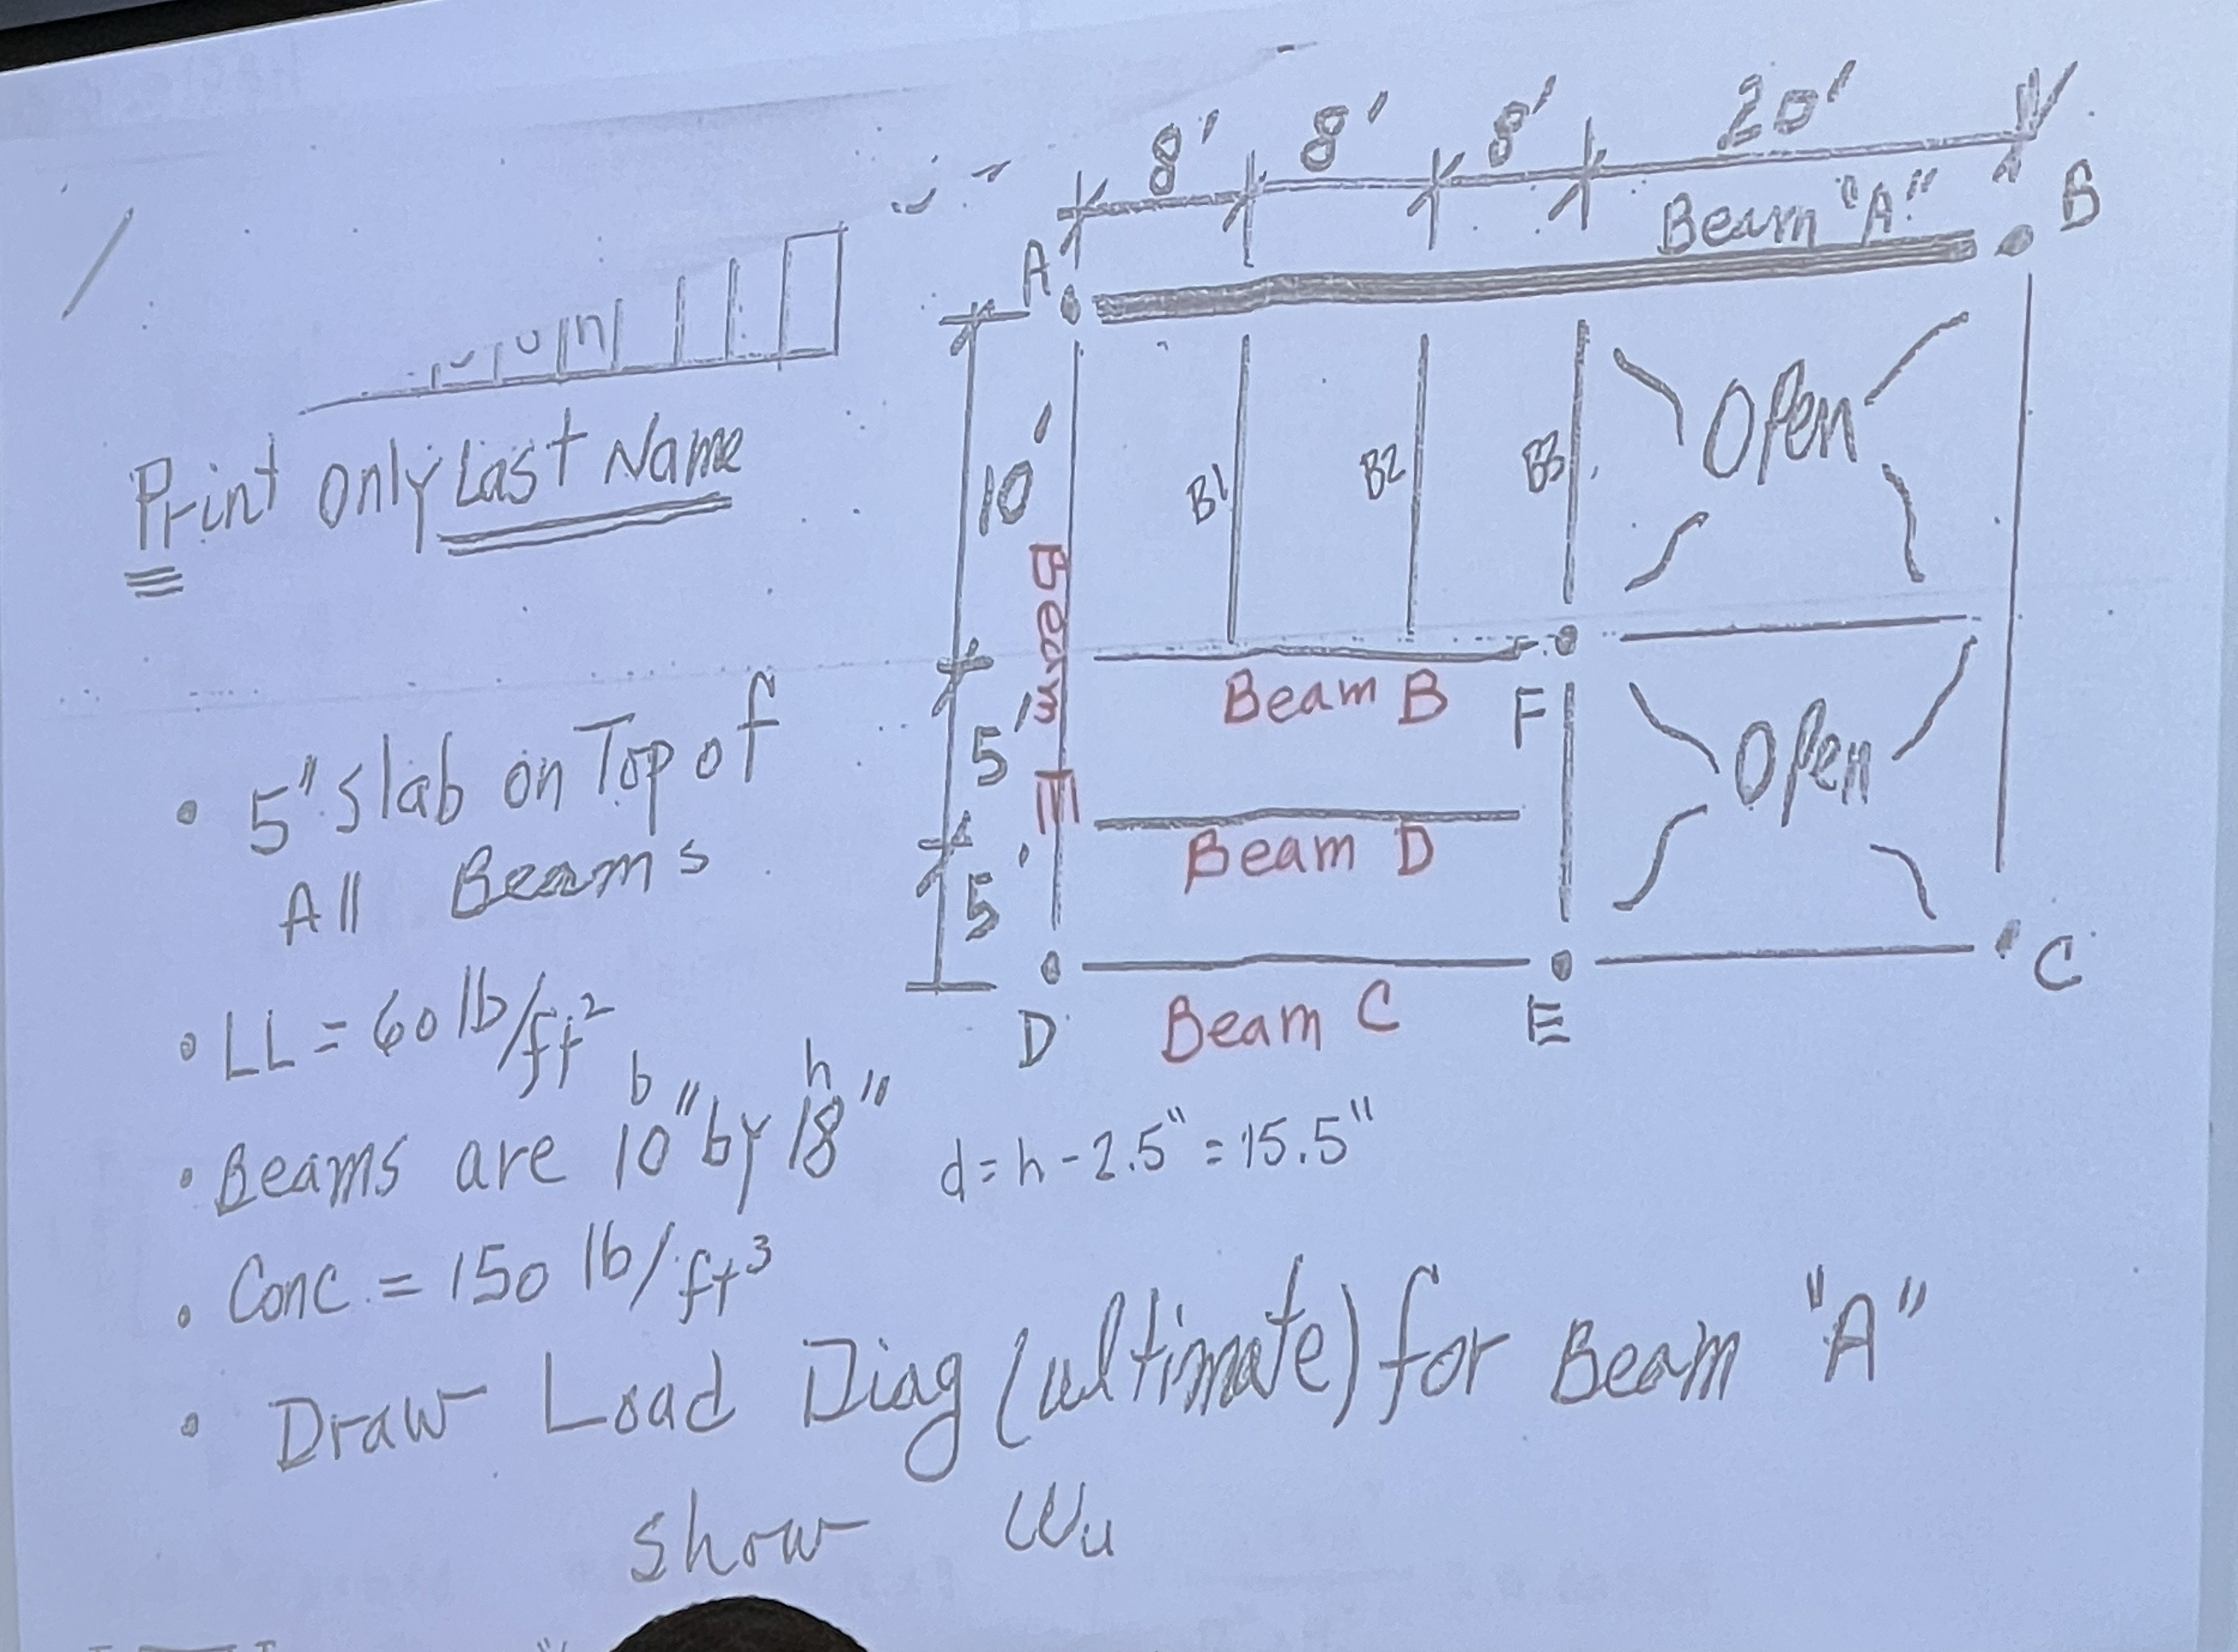 8' 8' 8' 20'
Beam "A"
A B
10'
B1 B2 B3 Open
Beam E
Beam B F
5'
Open
Beam D
5'
D E C
Beam C
Print only Last Name
• 5" Slab on Top of
All Beams
• LL = 60 lb/ft²
b h
• Beams are 10" by 18" d = h - 2.5" = 15.5"
• Conc. = 150 lb/ft³
• Draw Load Diag (ultimate) for Beam "A"
show Wu